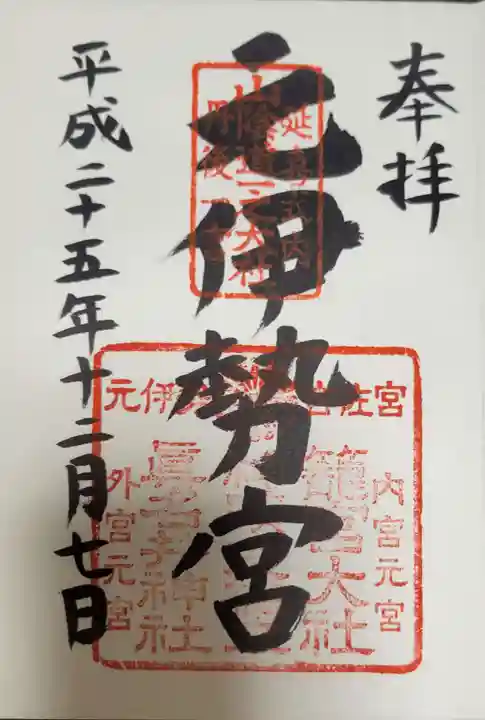 奉拝
元伊勢宮
平成二十五年十二月七日
延喜式内
山陰道一之大社
丹後一宮
元伊勢
吉佐宮
内宮元宮
籠宮大社
眞名井神社
外宮元宮